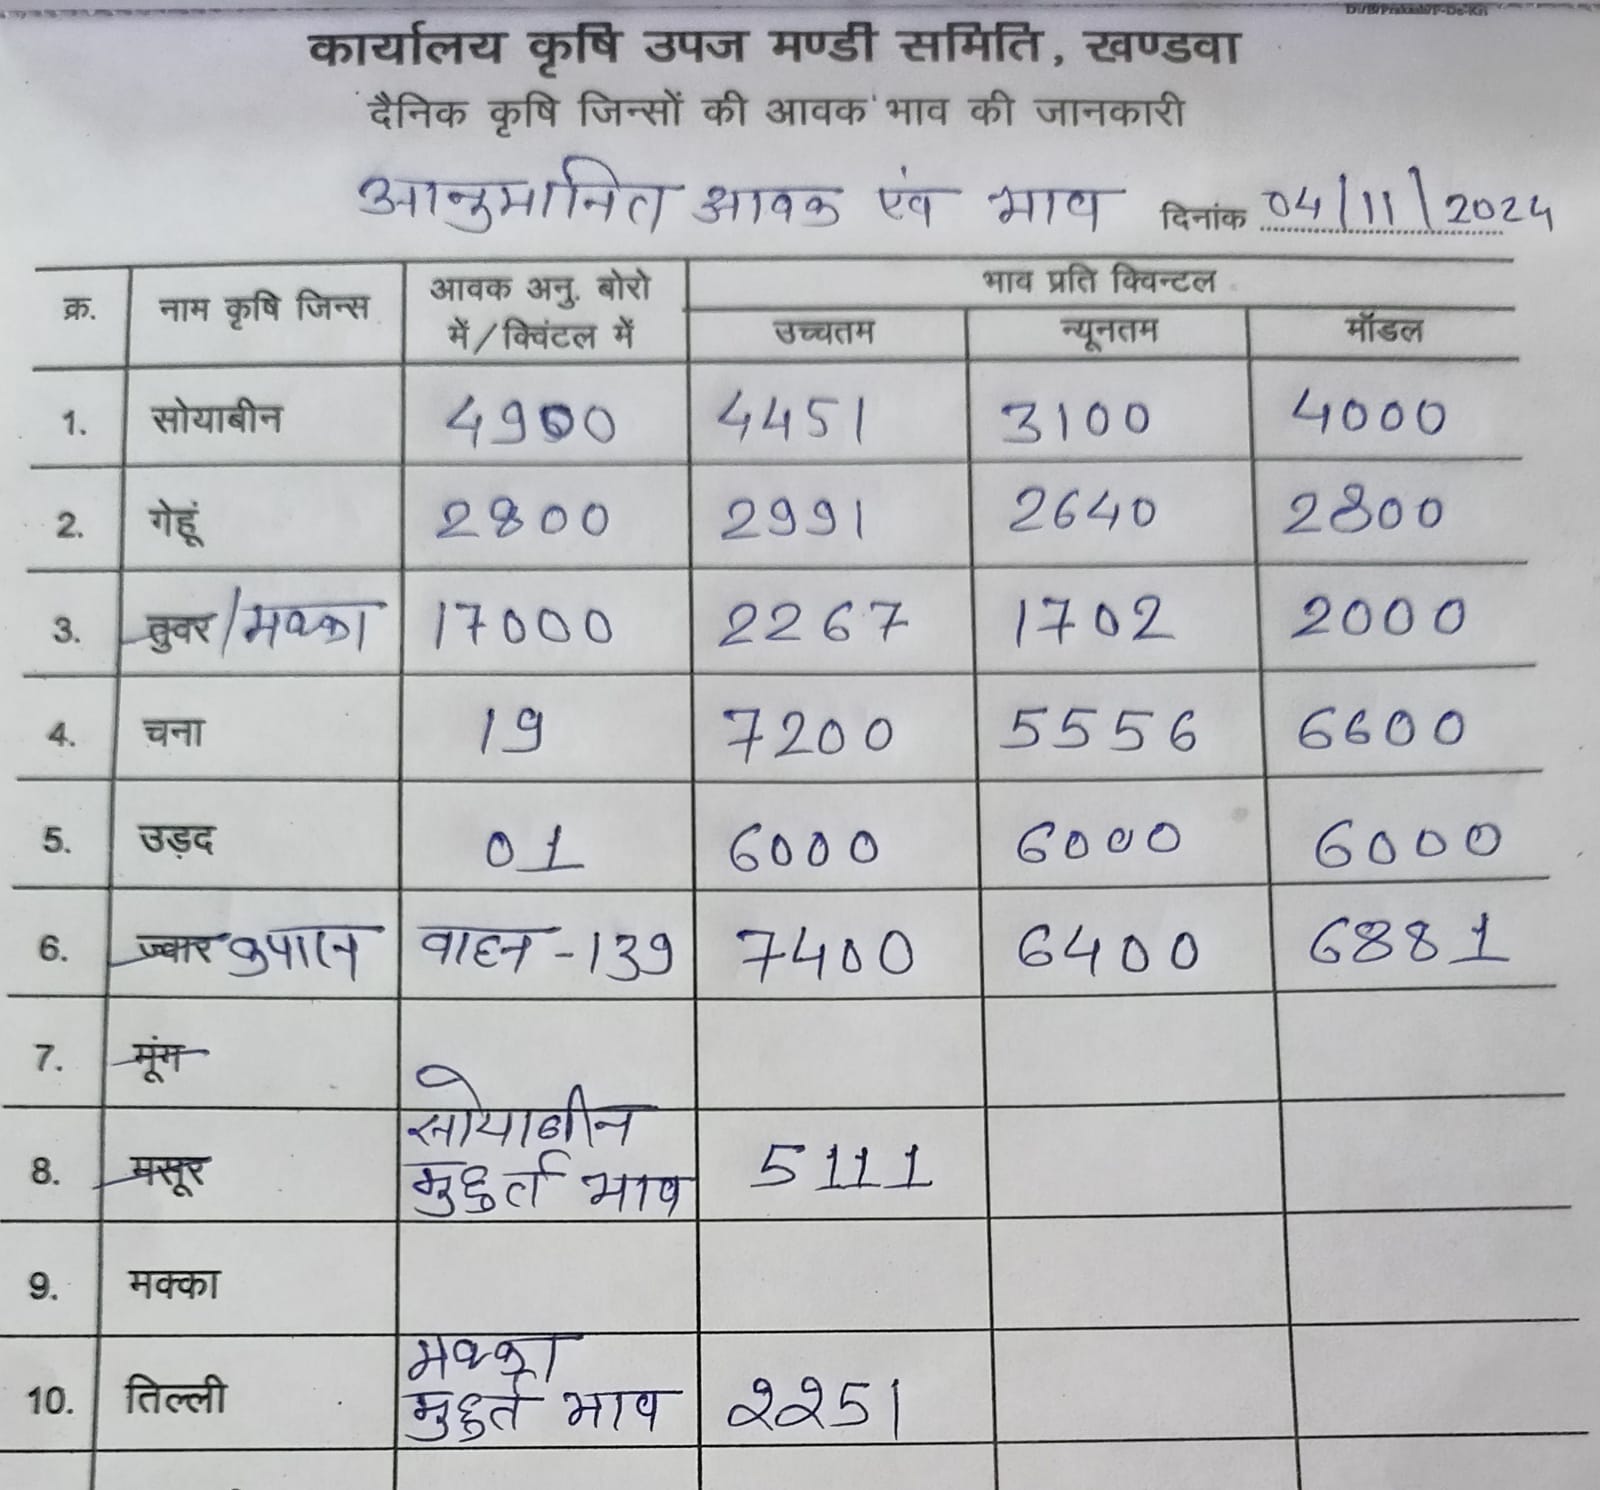 कार्यालय कृषि उपज मण्डी समिति, खण्डवा
दैनिक कृषि जिन्सों की आवक भाव की जानकारी
आनुमानित आवक एंव भाव दिनांक 04/11/2024
क्र. नाम कृषि जिन्स आवक अनु. बोरो में/क्विंटल में भाव प्रति क्विन्टल
उच्चतम न्यूनतम मॉडल
1. सोयाबीन 4900 4451 3100 4000
2. गेहूं 2800 2991 2640 2800
3. तुवर/मक्का 17000 2267 1702 2000
4. चना 19 7200 5556 6600
5. उड़द 01 6000 6000 6000
6. ज्वार कपास वाहन - 139 7400 6400 6881
7. मूंग
8. मसूर सोयाबीन मुहुर्त भाव 5111
9. मक्का
10. तिल्ली मक्का मुहुर्त भाव 2251